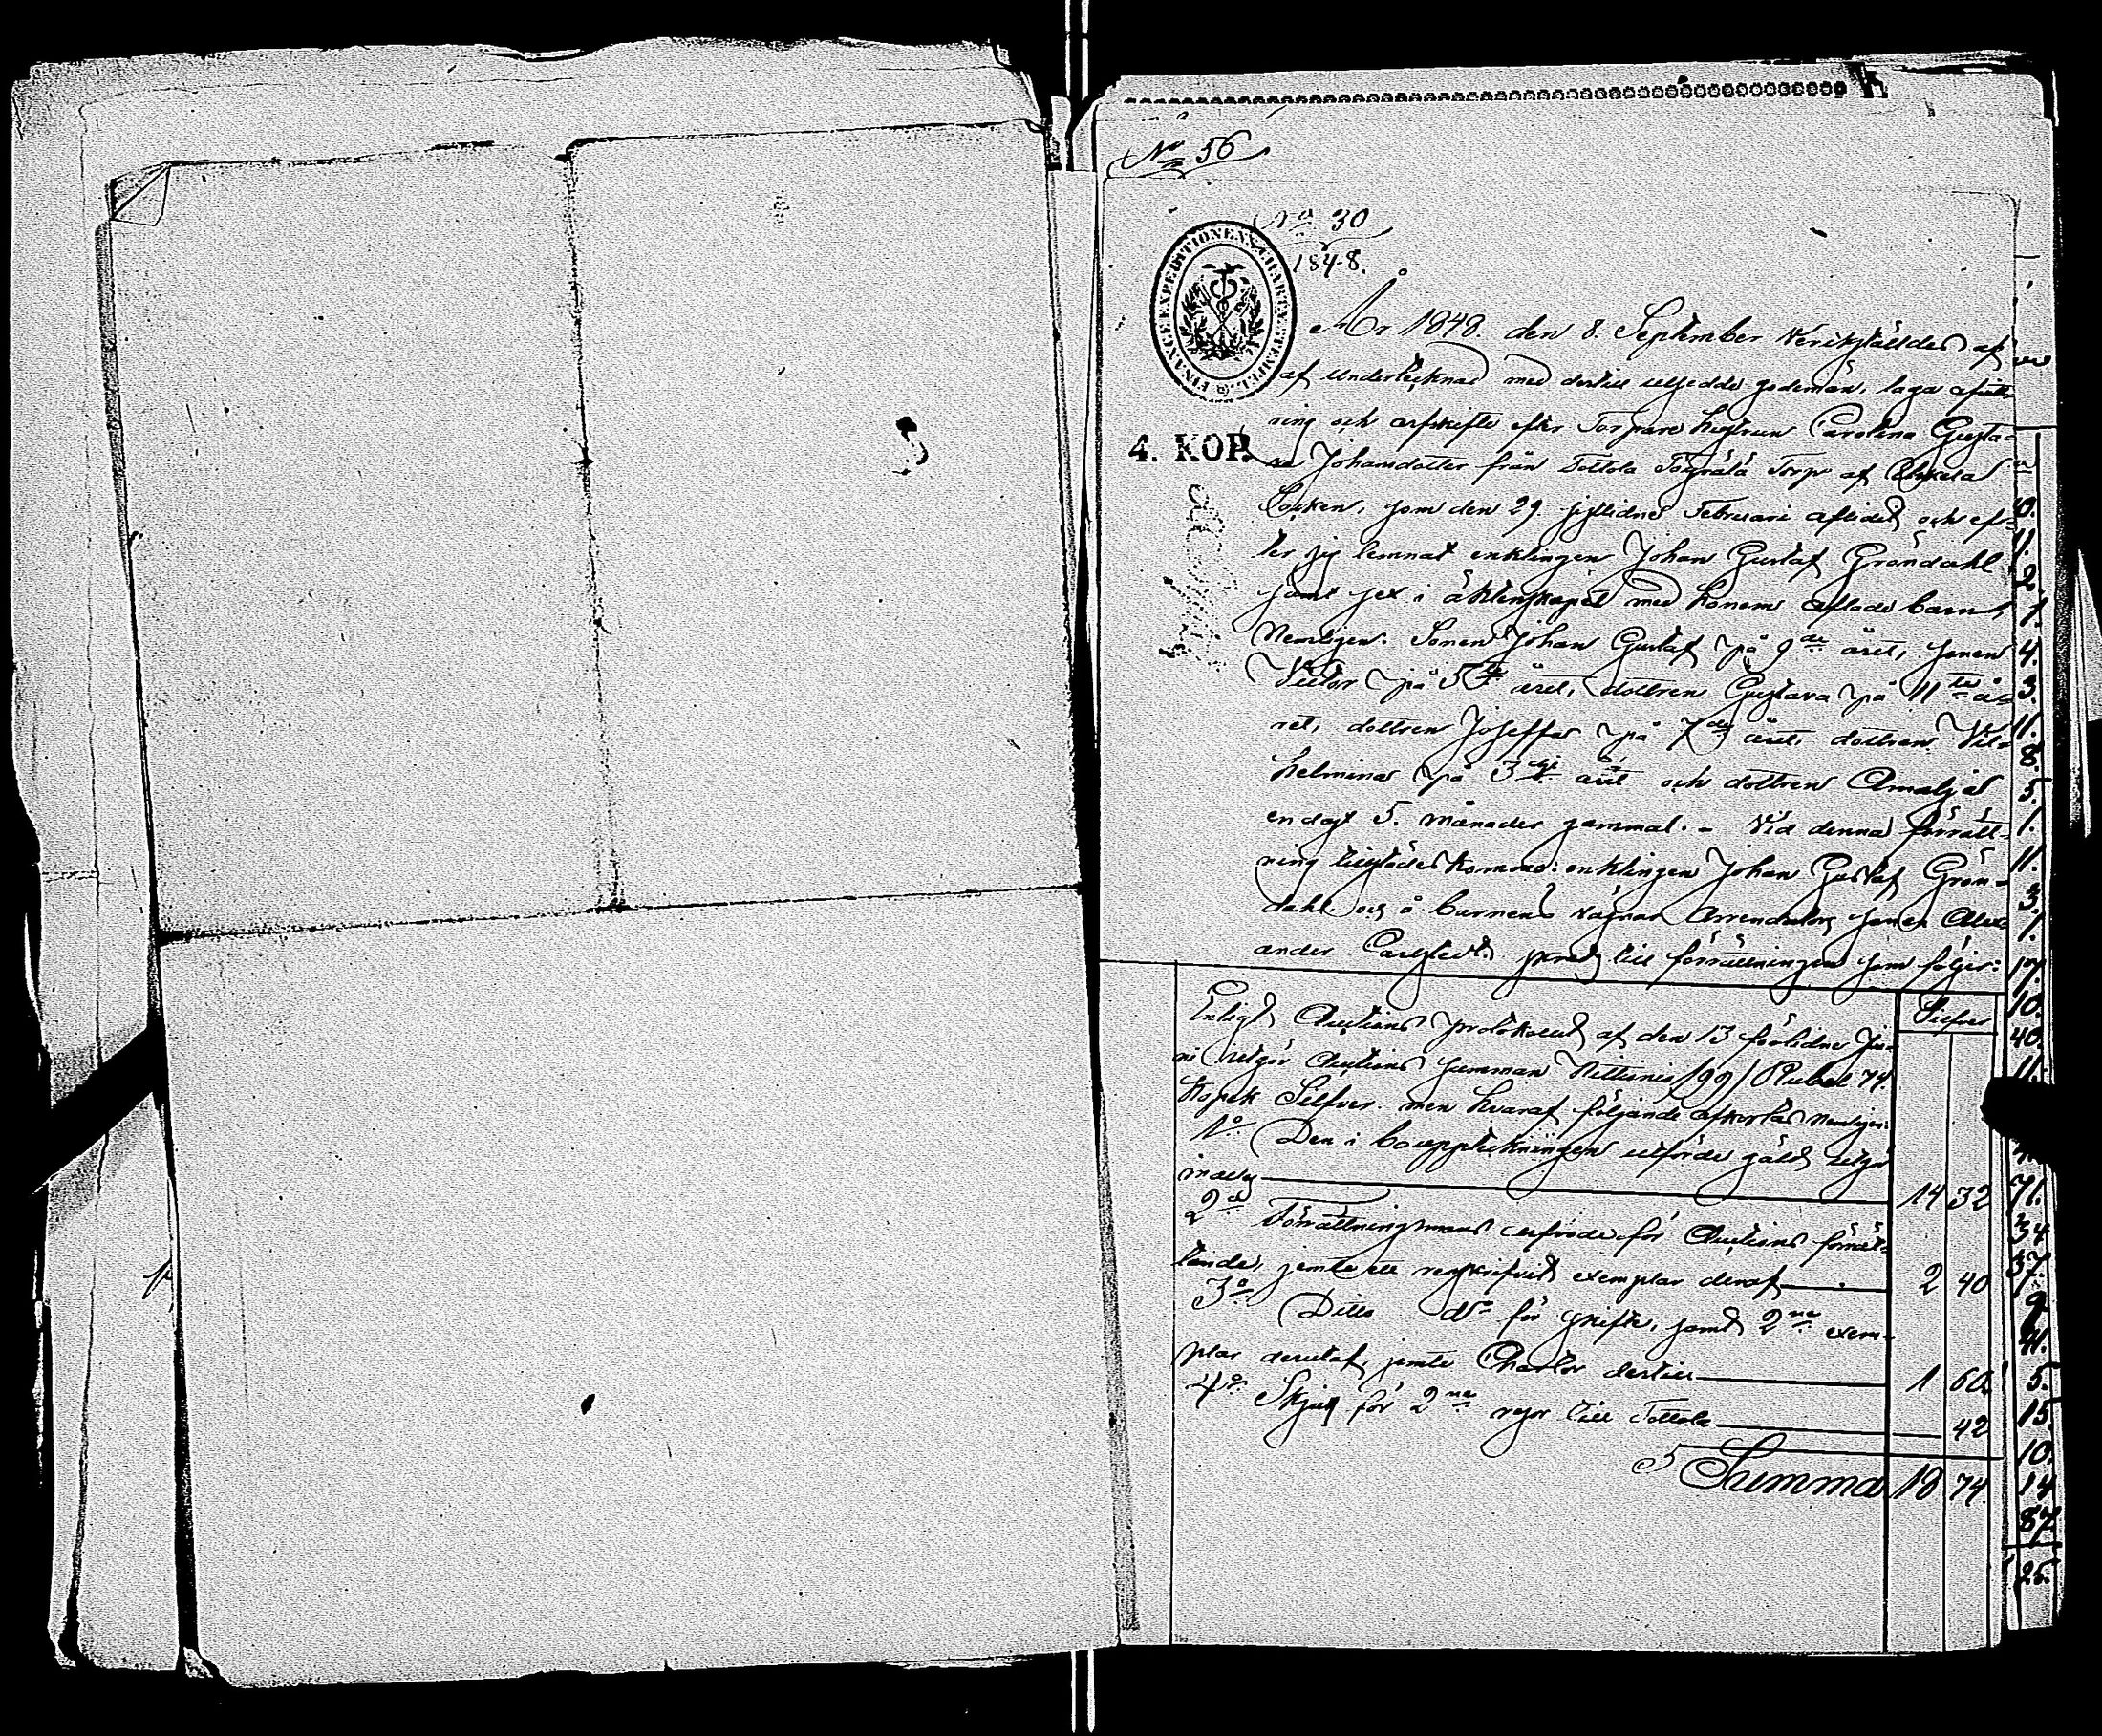 No 56
No 30
1848.
FINANCE EXPEDITIONENS CHARTÆ STEMPEL
4. KOP.
År 1848. den 8. September verkstäldes af
af undertecknad med dertill utsedde godemän, laga afvitt-
ring och arfskifte efter Torpare hustrun Carolina Gusta-
va Johansdotter från Tottola Torp af
Socken, som den 29 sistlidne Februari aflidit och ef-
ter sig lemnat enklingen Johan Gustaf Gröndahl
samt sex i äktenskapet med honom aflade barn,
Nemligen: Sonen Johan Gustaf på 9de året, sonen
Victor på 5te året, dottren Gustava på 11te å-
ret, dottren Joseffa på 7de året, dottren Vil-
helmina på 3dje året och dottren Amalja
endast 5. månader gammal. - Vid denna förrätt-
ning tillstädes kommo: enklingen Johan Gustaf Grön-
dahl och å barnens vägnar Arrendator sonen Alex-
ander Carlstedt. skreds till förrättningen som följer:
Silfver
Enligt Auctions protokoll af den 13 förlidne Ju-
ni utgör Auctions summan Nittionio /99/ Rubel 74.
Kopek Silfver. men hvaraf följande afkortas nemligen:
1o Den i bouppteckningen utförde gäld utgör
inalles 14 32
2o Förrättningsmans arfvode för Auctions förrät-
tande, jemte ett renskrifvit exemplar deraf 2 40
3o Ditto do för skifte, samt 2ne exem-
plar derutaf, jemte Charta dertill 1 60
4o Skjuts för 2ne resor till Tottola 42
Summa 18 74